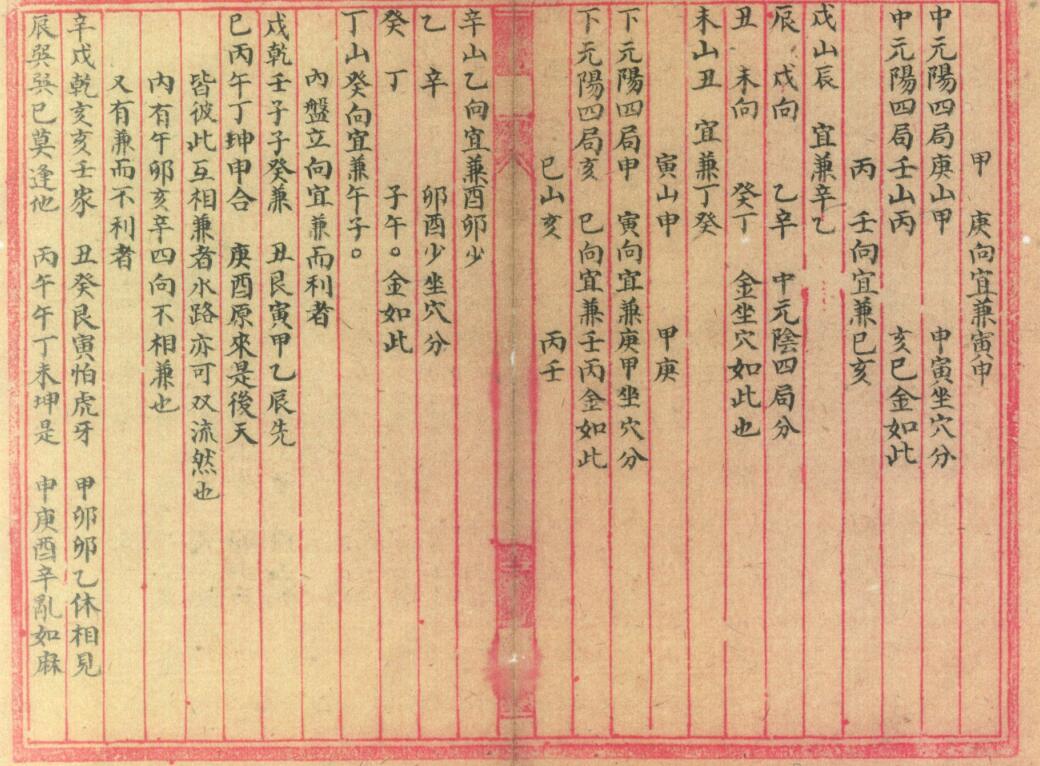 甲　庚向宜兼寅申
中元陽四局庚山甲　申寅坐穴分
中元陽四局壬山丙　亥巳金如此
丙　壬向宜兼巳亥
戊山辰　宜兼辛乙
辰　戊向　乙辛　中元陰四局分
丑　未向　癸丁　金坐穴如此也
未山丑　宜兼丁癸
寅山申　甲庚
下元陽四局甲　寅向宜兼庚甲坐穴分
下元陽四局亥　巳向宜兼壬丙金如此
巳山亥　丙壬
辛山乙向宜兼酉卯少
乙　辛　卯酉少坐穴分
癸　丁　子午。金如此
丁山癸向宜兼午子。
內盤立向宜兼而利者
戍乾壬子子癸兼　丑艮寅甲乙辰先
巳丙午丁坤申合　庚酉原來是後天
皆彼此互相兼者水路亦可双流然也
內有午卯亥辛四向不相兼也
又有兼而不利者
辛戍乾亥亥壬家　丑癸艮寅怕虎牙　甲卯卯乙休相見
辰巽巽巳莫逢他　丙午午丁未坤是　申庚酉辛亂如麻